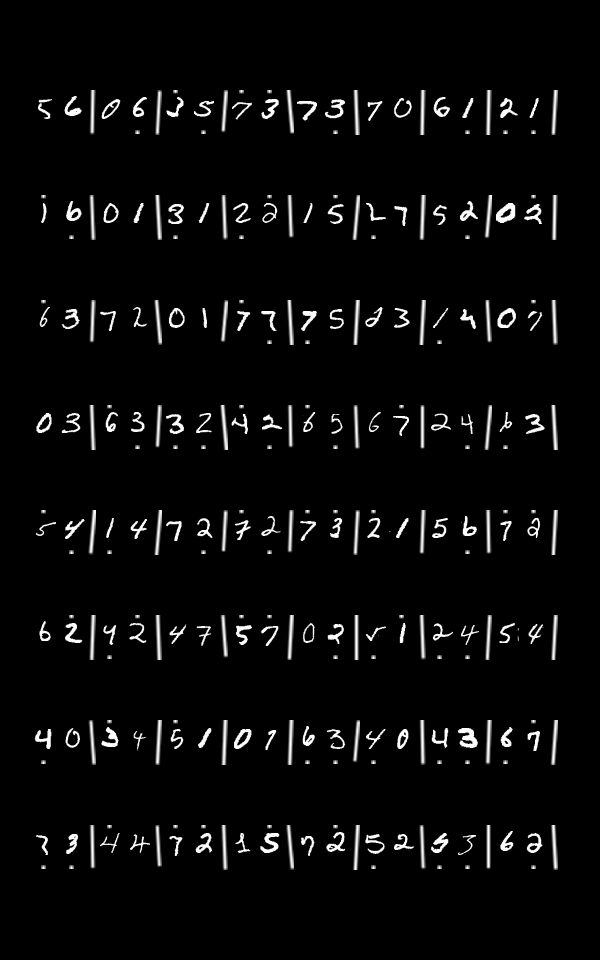 5 6 | 0 6 | 3 5 | 7 3 | 7 3 | 7 0 | 6 1 | 2 1 |
1 6 | 0 1 | 3 1 | 2 2 | 1 5 | 2 7 | 5 2 | 0 2 |
6 3 | 7 2 | 0 1 | 7 7 | 7 5 | 2 3 | 1 4 | 0 7 |
0 3 | 6 3 | 3 2 | 4 2 | 6 5 | 6 7 | 2 4 | 6 3 |
5 4 | 1 4 | 7 2 | 7 2 | 7 3 | 2 1 | 5 6 | 7 2 |
6 2 | 4 2 | 4 7 | 5 7 | 0 2 | 1 | 2 4 | 5 4 |
4 0 | 3 4 | 5 1 | 0 7 | 6 3 | 4 0 | 4 3 | 6 7 |
7 3 | 4 4 | 7 2 | 1 5 | 7 2 | 5 2 | 5 3 | 6 2 |